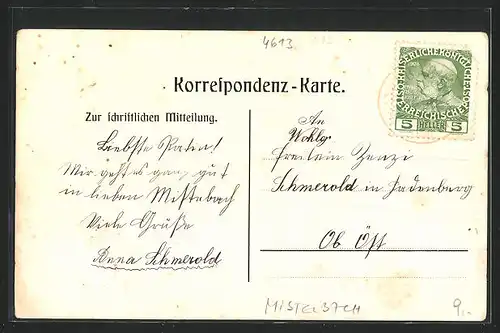 4613
Korreſpondenz-Karte.
Zur ſchriftlichen Mitteilung.
Liebste Paten!
Mir geht es ganz gut
in lieben Mistebach
Viele Grüße
Anna Schmerold
KAISERLICHE KÖNIGLICHE
ÖSTERREICHISCHE
5 HELLER 5
An
Wohlg
Freilein Zenzi
Schmerold in Hadenberg
Ob Öst
MISTELBACH
9.-